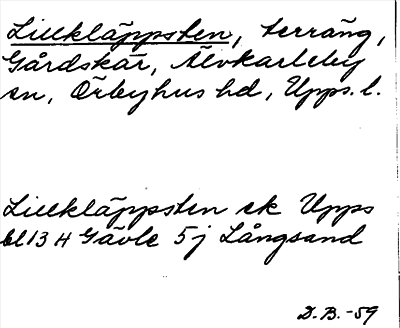 Lillkläppsten, terräng,
Gårdskär, Älvkarleby
sn, Örbyhus hd, Upps. l.
Lillkläppsten ek Upps
bl 13 H Gävle 5j Långsand
D.B.-59